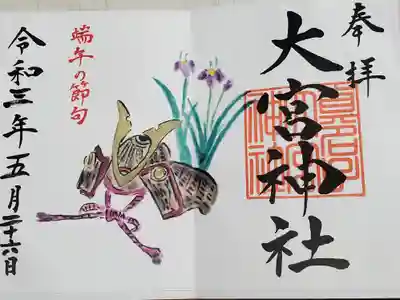 奉拝
大宮神社
端午の節句
令和三年五月二十六日